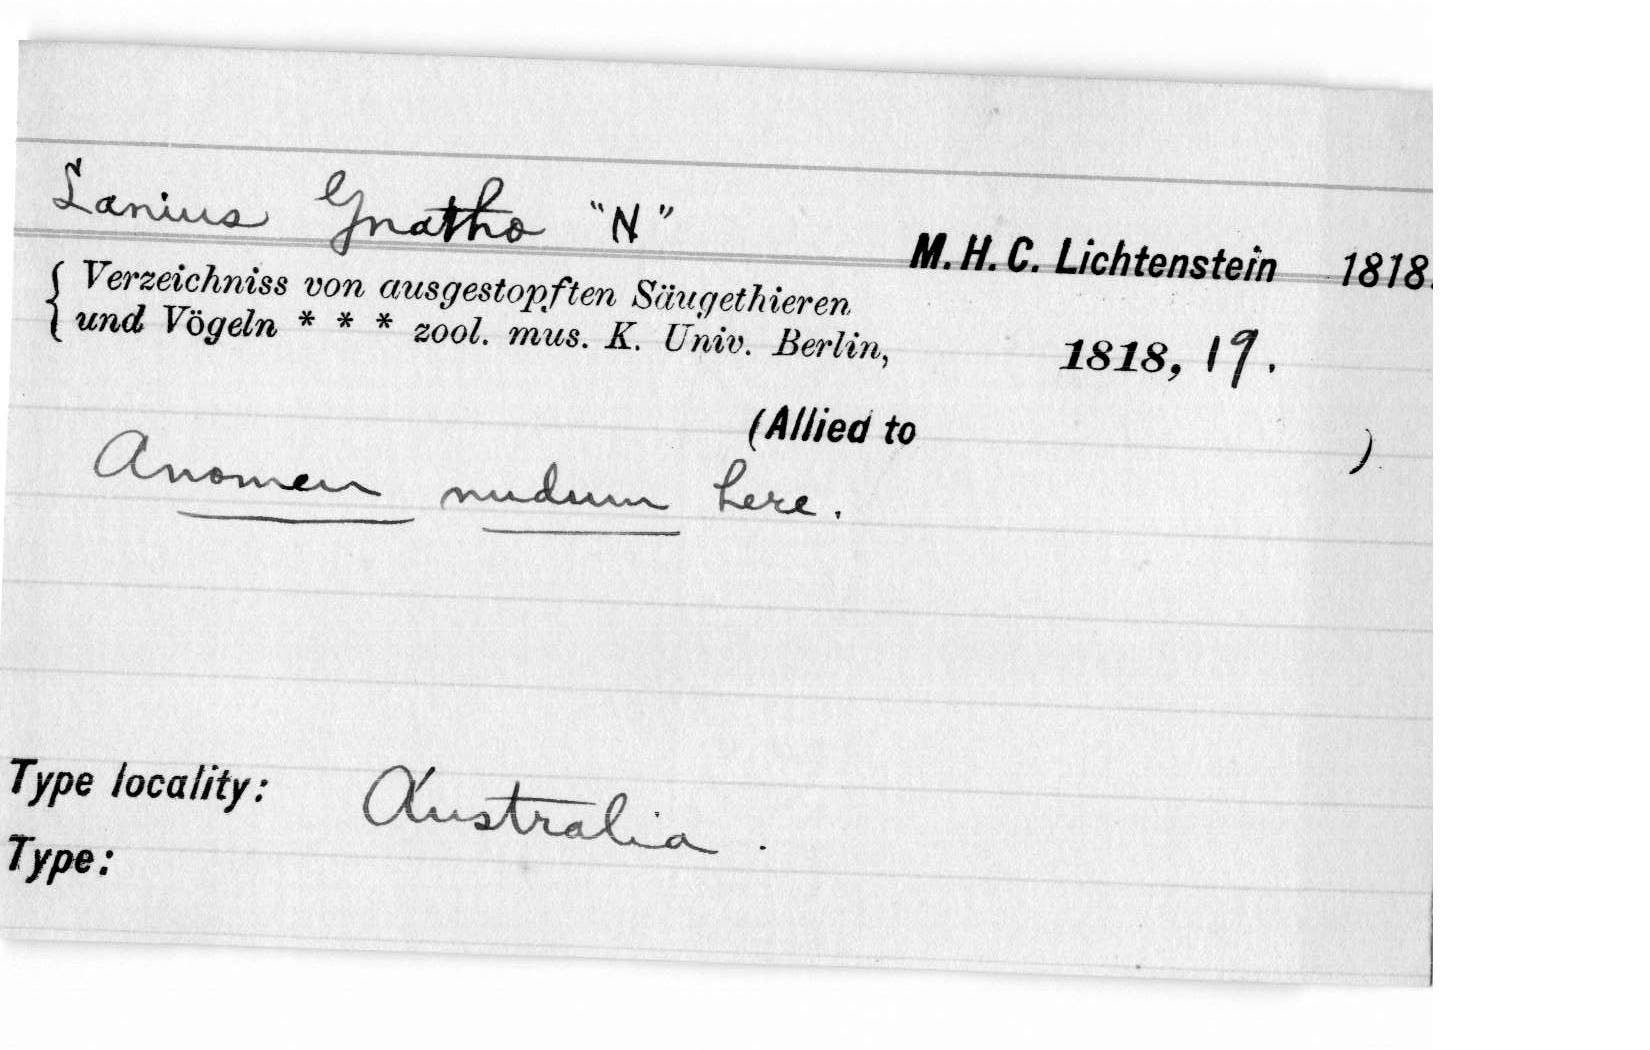 Lanius Gnatho "N"
M. H. C. Lichtenstein 1818.
{ Verzeichniss von ausgestopften Säugethieren
und Vögeln * * * zool. mus. K. Univ. Berlin, 1818, 19.
(Allied to )
A nomen nudum here.
Type locality: Australia.
Type: